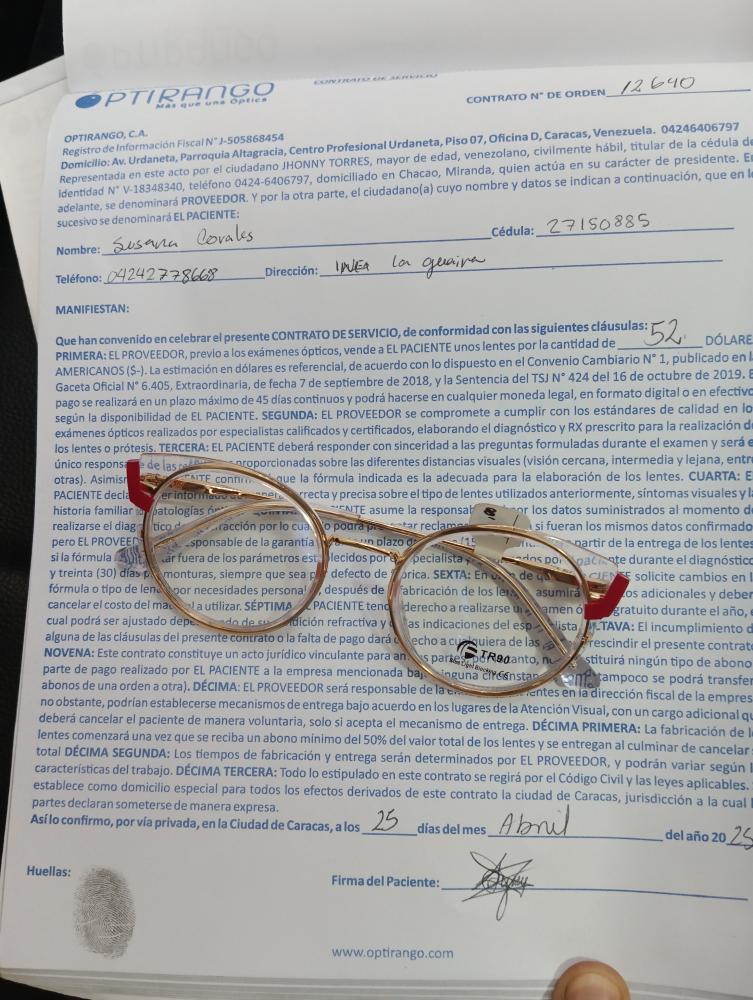 CONTRATO DE SERVICIO
OPTIRANGO
Más que una Óptica
CONTRATO N° DE ORDEN 12640
OPTIRANGO, C.A.
Registro de Información Fiscal N° J-505868454
Domicilio: Av. Urdaneta, Parroquia Altagracia, Centro Profesional Urdaneta, Piso 07, Oficina D, Caracas, Venezuela. 04246406797
Representada en este acto por el ciudadano JHONNY TORRES, mayor de edad, venezolano, civilmente hábil, titular de la cédula de
identidad N° V-18348340, teléfono 0424-6406797, domiciliado en Chacao, Miranda, quien actúa en su carácter de presidente. E
adelante, se denominará PROVEEDOR. Y por la otra parte, el ciudadano(a) cuyo nombre y datos se indican a continuación, que en l
sucesivo se denominará EL PACIENTE:
Nombre: Susana Corales Cédula: 27150885
Teléfono: 04242778668 Dirección: la guaira
MANIFIESTAN:
Que han convenido en celebrar el presente CONTRATO DE SERVICIO, de conformidad con las siguientes cláusulas: 52 DÓLARE
PRIMERA: EL PROVEEDOR, previo a los exámenes ópticos, vende a EL PACIENTE unos lentes por la cantidad de
AMERICANOS ($-). La estimación en dólares es referencial, de acuerdo con lo dispuesto en el Convenio Cambiario N° 1, publicado en l
Gaceta Oficial N° 6.405, Extraordinaria, de fecha 7 de septiembre de 2018, y la Sentencia del TSJ N° 424 del 16 de octubre de 2019. E
pago se realizará en un plazo máximo de 45 días continuos y podrá hacerse en cualquier moneda legal, en formato digital o en efectivo
según la disponibilidad de EL PACIENTE. SEGUNDA: EL PROVEEDOR se compromete a cumplir con los estándares de calidad en lo
exámenes ópticos realizados por especialistas calificados y certificados, elaborando el diagnóstico y RX prescrito para la realización d
los lentes o prótesis. TERCERA: EL PACIENTE deberá responder con sinceridad a las preguntas formuladas durante el examen y será e
único responsa e de las proporcionadas sobre las diferentes distancias visuales (visión cercana, intermedia y lejana, entr
otras). Asimis ENTE confir que la fórmula indicada es la adecuada para la elaboración de los lentes. CUARTA: E
PACIENTE decla er informado recta y precisa sobre el tipo de lentes utilizados anteriormente, síntomas visuales y l
historia familiar atologías ENTE asume la responsa or los datos suministrados al momento d
realizarse el diag racción por lo podrá tar reclam si fueran los mismos datos confirmado
pero EL PROVEE sponsable de la garantía un plazo d (15 partir de la entrega de los lentes
si la fórmula ar fuera de los parámetros est lecidos por e pecialista ados por paciente durante el diagnóstic
y treinta (30) días p monturas, siempre que sea p defecto de f rica. SEXTA: En CIENTE solicite cambios en l
fórmula o tipo de len por necesidades personal , después de abricación de los le asumirá os adicionales y deber
cancelar el costo del ma l a utilizar. SÉPTIMA PACIENTE tend derecho a realizarse u amen gratuito durante el año,
cual podrá ser ajustado depe do de su dición refractiva y las indicaciones del esp lista. CTAVA: El incumplimiento d
alguna de las cláusulas del presente contrato o la falta de pago dará echo a cualquiera de las rescindir el presente contrat
NOVENA: Este contrato constituye un acto jurídico vinculante para an as part por tanto, n stituirá ningún tipo de abono
parte de pago realizado por EL PACIENTE a la empresa mencionada baj inguna circunstan tampoco se podrá transfer
abonos de una orden a otra). DÉCIMA: EL PROVEEDOR será responsable de la entes en la dirección fiscal de la empres
no obstante, podrían establecerse mecanismos de entrega bajo acuerdo en los lugares de la Atención Visual, con un cargo adicional q
deberá cancelar el paciente de manera voluntaria, solo si acepta el mecanismo de entrega. DÉCIMA PRIMERA: La fabricación de l
lentes comenzará una vez que se reciba un abono mínimo del 50% del valor total de los lentes y se entregan al culminar de cancelar
total DÉCIMA SEGUNDA: Los tiempos de fabricación y entrega serán determinados por EL PROVEEDOR, y podrán variar según l
características del trabajo. DÉCIMA TERCERA: Todo lo estipulado en este contrato se regirá por el Código Civil y las leyes aplicables.
establece como domicilio especial para todos los efectos derivados de este contrato la ciudad de Caracas, jurisdicción a la cual l
partes declaran someterse de manera expresa.
Así lo confirmo, por vía privada, en la Ciudad de Caracas, a los 25 días del mes Abril del año 2025
Huellas:
Firma del Paciente:
www.optirango.com
TR90